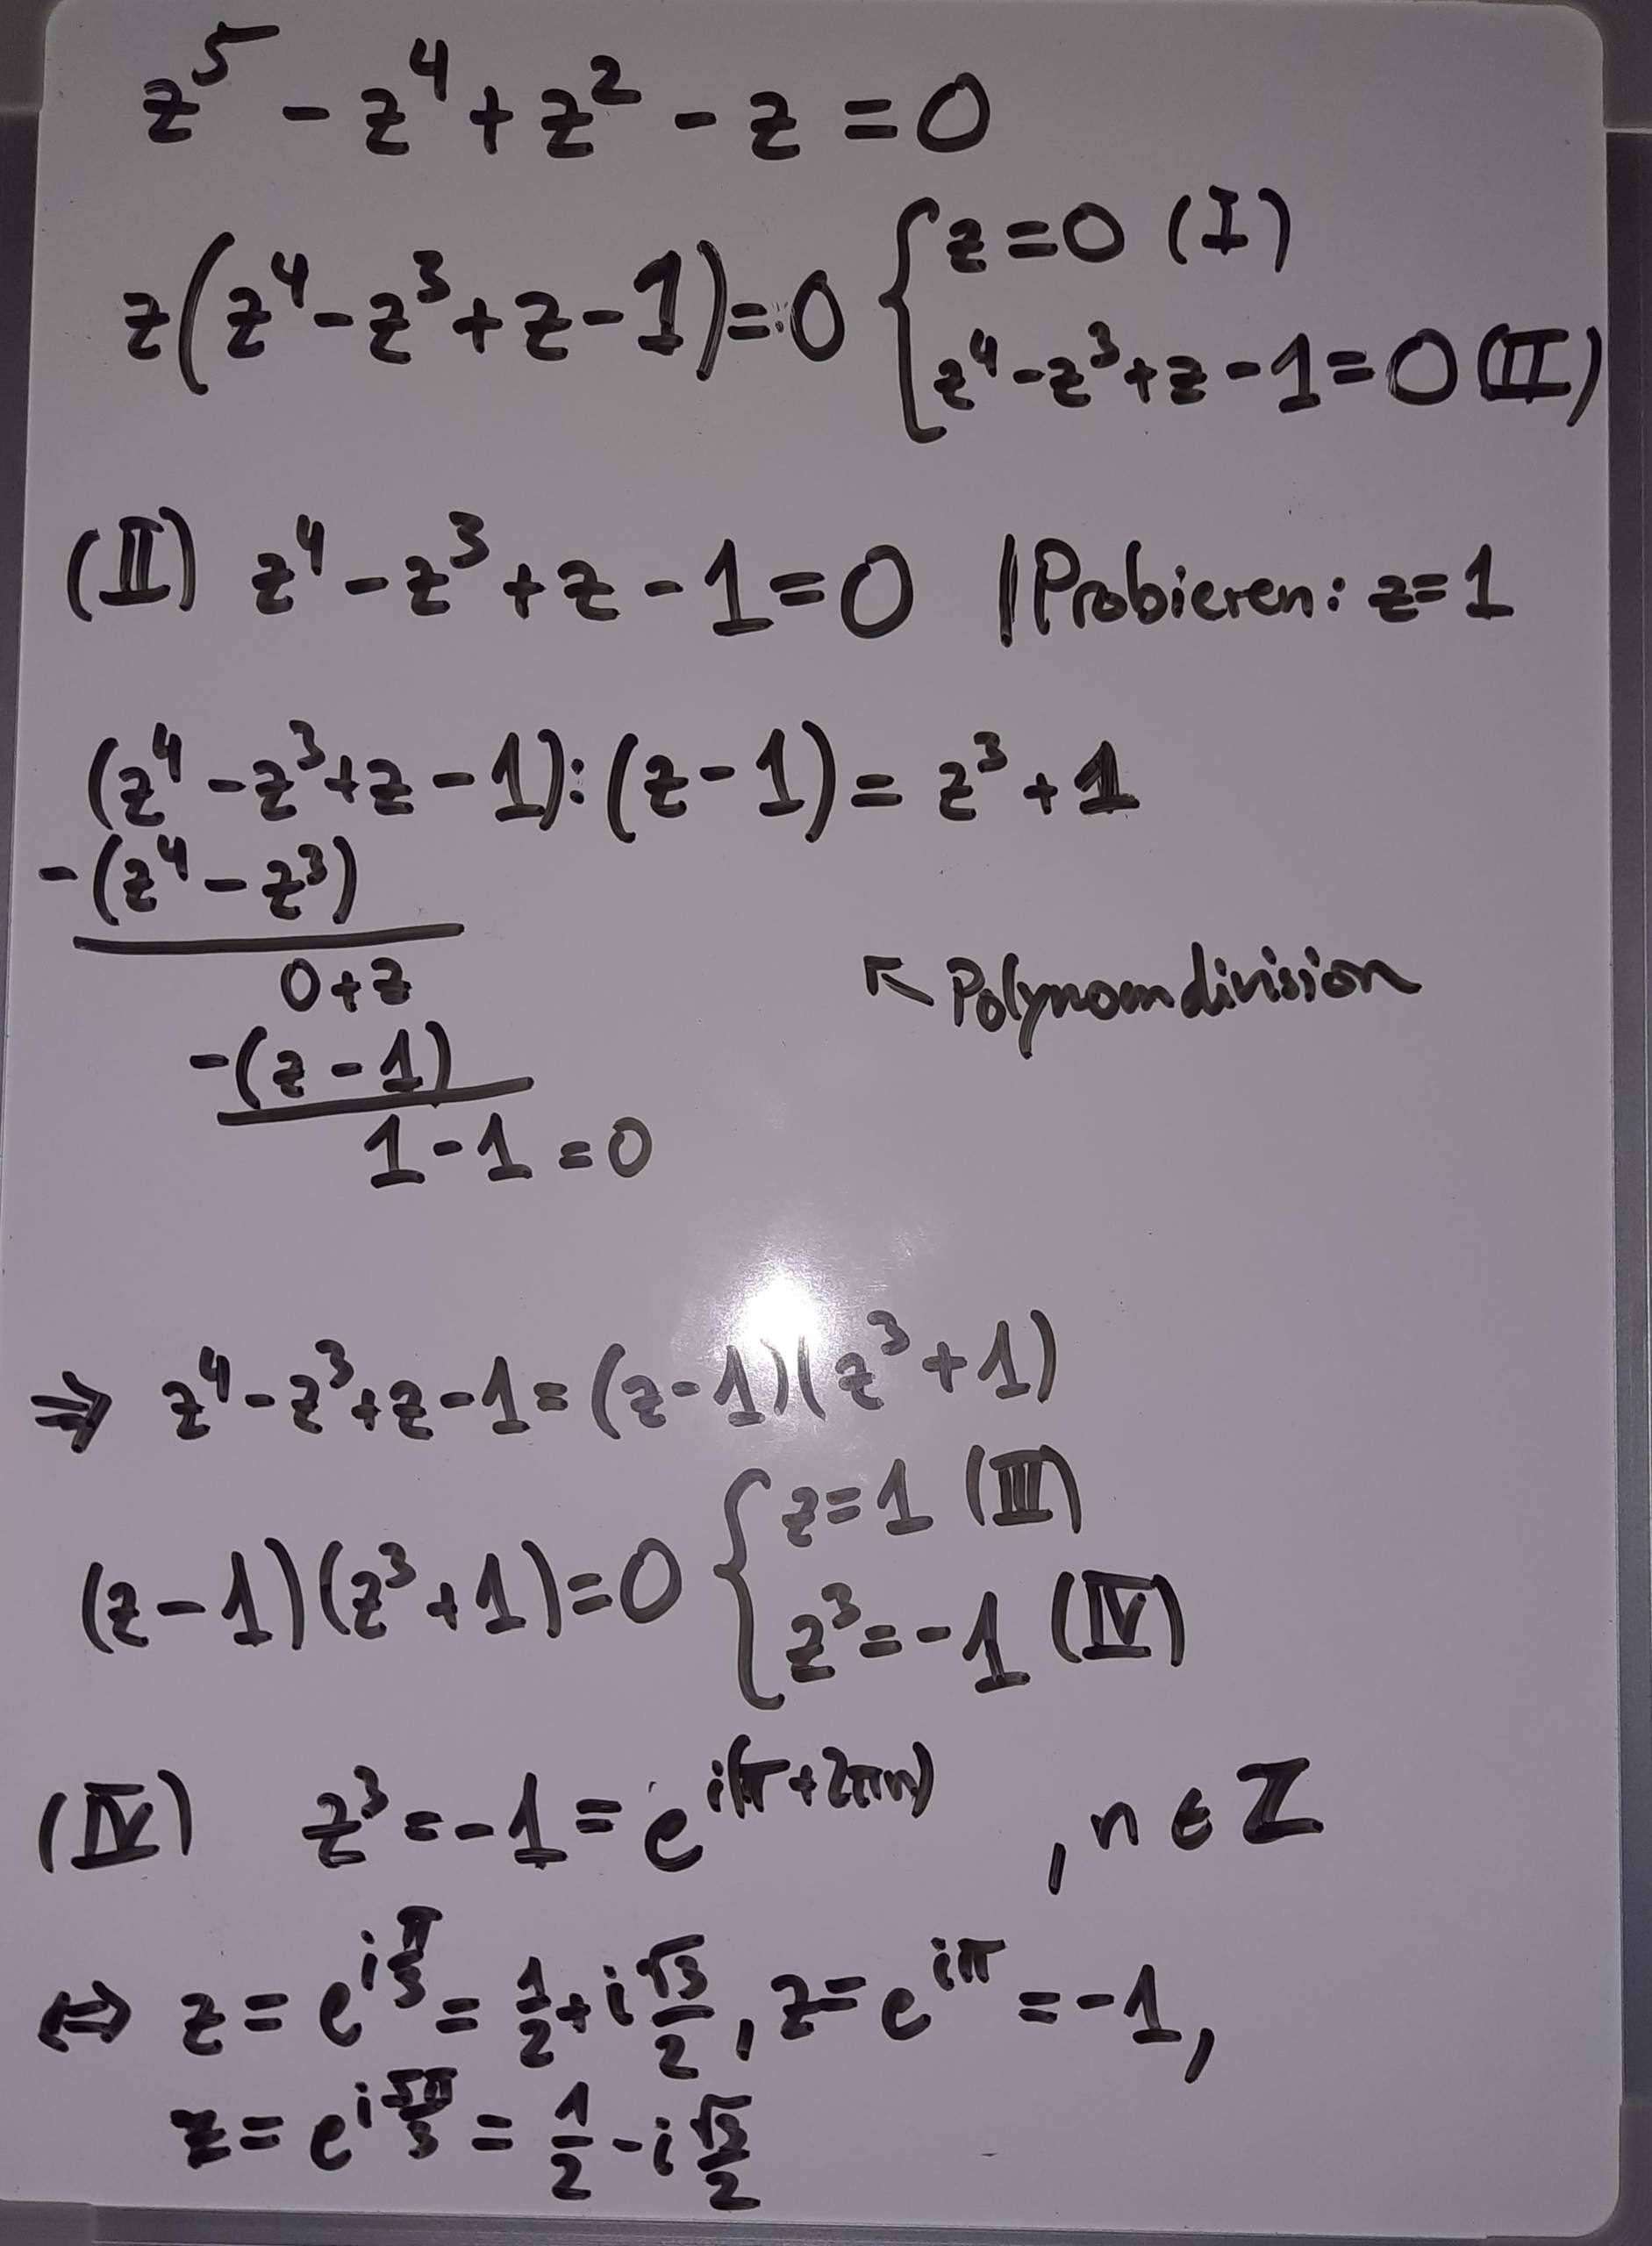 z⁵ - z⁴ + z² - z = 0
z(z⁴ - z³ + z - 1) = 0 { z = 0 (I)
z⁴ - z³ + z - 1 = 0 (II)
(II) z⁴ - z³ + z - 1 = 0 | Probieren: z = 1
(z⁴ - z³ + z - 1) : (z - 1) = z³ + 1
-(z⁴ - z³)
0 + z
↖ Polynomdivision
-(z - 1)
1 - 1 = 0
⇒ z⁴ - z³ + z - 1 = (z - 1)(z³ + 1)
(z - 1)(z³ + 1) = 0 { z = 1 (III)
z³ = -1 (IV)
(IV) z³ = -1 = e^{i(π + 2πn)} , n ∈ Z
⇔ z = e^{i π/3} = 1/2 + i √3/2, z = e^{iπ} = -1,
z = e^{i 5π/3} = 1/2 - i √3/2